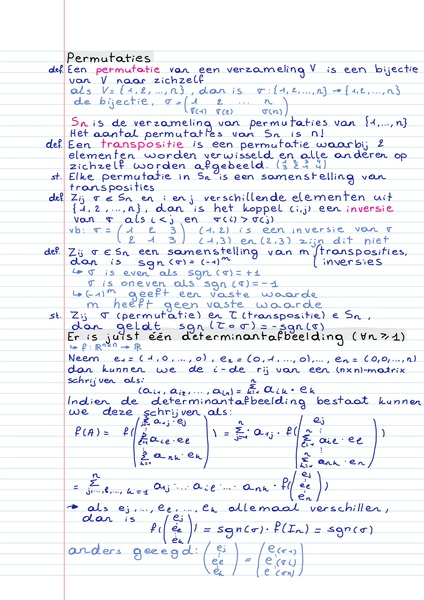 Permutaties
def. Een permutatie van een verzameling V is een bijectie
van V naar zichzelf
als V = {1,2,...,n}, dan is σ: {1,2,...,n} → {1,2,...,n}
de bijectie, σ = (1 2 ... n
σ(1) σ(2) σ(n))
Sn is de verzameling van permutaties van {1,...,n}
Het aantal permutaties van Sn is n!
def. Een transpositie is een permutatie waarbij 2
elementen worden verwisseld en alle anderen op
zichzelf worden afgebeeld.
st. Elke permutatie in Sn is een samenstelling van
transposities
def. Zij σ ∈ Sn en i en j verschillende elementen uit
{1,2,...,n}, dan is het koppel (i,j) een inversie
van σ als i<j en σ(i) > σ(j)
vb: σ = (1 2 3 (1,2) is een inversie van σ
2 1 3) (1,3) en (2,3) zijn dit niet
def. Zij σ ∈ Sn een samenstelling van m {transposities,
dan is sgn(σ) = (-1)^m inversies
↳ σ is even als sgn(σ) = +1
σ is oneven als sgn(σ) = -1
↳ (-1)^m geeft een vaste waarde
m heeft geen vaste waarde
st. Zij σ (permutatie) en τ (transpositie) ∈ Sn,
dan geldt sgn(τ∘σ) = -sgn(σ)
Er is juist één determinantafbeelding (∀n≥1)
↳ f: ℝ^{n×n} → ℝ
Neem e1 = (1,0,...,0), e2 = (0,1,...,0),..., en = (0,0,...,n)
dan kunnen we de i-de rij van een (n×n)-matrix
schrijven als:
(ai1, ai2, ..., ain) = Σ_{k=1}^n aik·ek
Indien de determinantafbeelding bestaat kunnen
we deze schrijven als:
f(A) = f(Σ a1j·ej ⋮ Σ ail·el ⋮ Σ ank·ek) = Σ_{j=1}^n a1j·f(ej ⋮ Σ ail·el ⋮ Σ ank·en)
= Σ_{j,...,l,...,k=1}^n a1j···ail···ank·f(ej ⋮ el ⋮ ek)
→ als ej,..., el,..., ek allemaal verschillen,
dan is
f(ej ⋮ el ⋮ ek) = sgn(σ)·f(In) = sgn(σ)
anders gezegd: (ej ⋮ el ⋮ ek) = (e(σ1) ⋮ e(σi) ⋮ e(σn))